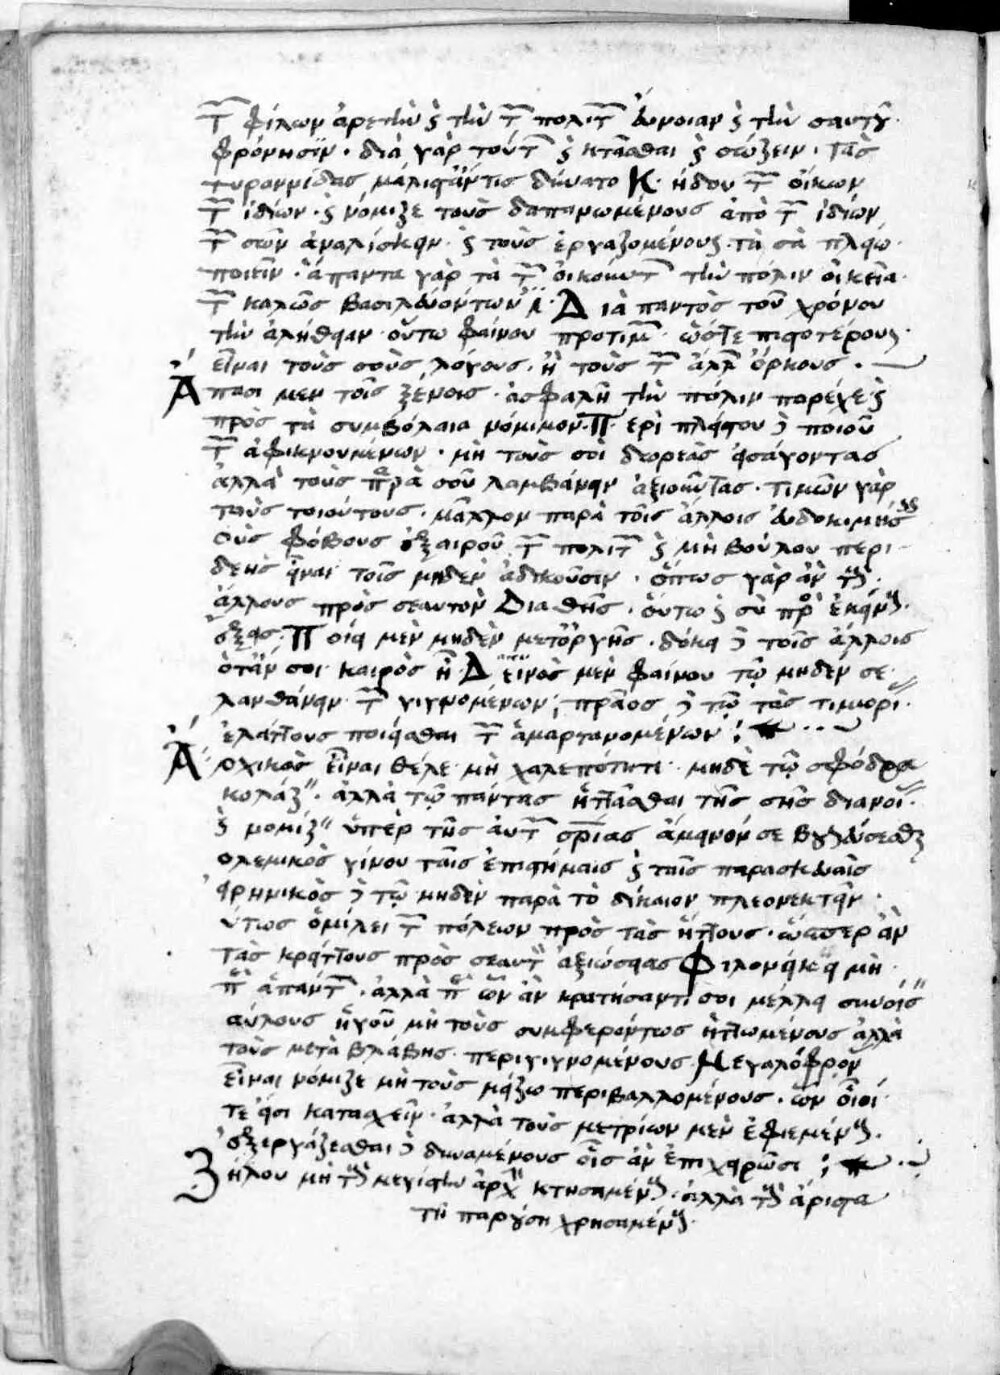 τῶν φίλων ἀρετὴν καὶ τὴν τῶν πολιτῶν εὔνοιαν καὶ τὴν σαυτοῦ
φρόνησιν · διὰ γὰρ τούτων καὶ κτᾶσθαι καὶ σώζειν · τὰς
τυραννίδας μάλιστ' ἄν τις δύναιτο Κήδου τῶν οἴκων
τῶν ἰδίων · καὶ νόμιζε τοὺς δαπανωμένους ἀπὸ τῶν ἰδίων
τῶν σῶν ἀναλίσκειν · καὶ τοὺς ἐργαζομένους · τὰ σὰ πλείω ·
ποιεῖν · ἅπαντα γὰρ τὰ τῶν οἰκούντων τὴν πόλιν οἰκεῖα ·
τῶν καλῶς βασιλευόντων Διὰ παντὸς τοῦ χρόνου
τὴν ἀλήθειαν · οὕτω φαίνου προτιμῶν · ὥστε πιστοτέρους ·
εἶναι τοὺς σοὺς λόγους · ἢ τοὺς τῶν ἄλλων ὅρκους ·
Ἅπασι μὲν τοῖς ξένοις · ἀσφαλῆ τὴν πόλιν πάρεχε καὶ
πρὸς τὰ συμβόλαια νόμιμον · Περὶ πλείστου δὲ ποιοῦ
τῶν ἀφικνουμένων · μὴ τοὺς σοὶ δωρεὰς εἰσάγοντας
ἀλλὰ τοὺς παρὰ σοῦ λαμβάνειν ἀξιοῦντας · τιμῶν γὰρ
τοὺς τοιούτους · μᾶλλον παρὰ τοῖς ἄλλοις εὐδοκιμήσεις
οὺς φόβους ἐξαίρου τῶν πολιτῶν καὶ μὴ βούλου περι
δεεῖς εἶναι τοῖς μηδὲν ἀδικοῦσιν · ὅπως γὰρ ἂν τοὺς
ἄλλους πρὸς σεαυτὸν Διαθῇς · οὕτω καὶ σὺ πρὸς ἐκείνους ·
ἕξεις · Ποίει μὲν μηδὲν μετ' ὀργῆς · δόκει δὲ τοῖς ἄλλοις
ὅταν σοι καιρὸς ᾖ · Δεινὸς μὲν φαίνου τῷ μηδὲν σε ·
λανθάνειν τῶν γιγνομένων · πρᾶος δὲ τῷ τὰς τιμωρί
ἐλάττους ποιεῖσθαι τῶν ἁμαρτανομένων :
Ἀρχικὸς εἶναι θέλε · μὴ χαλεπότητι · μηδὲ τῷ σφόδρα
κολάζειν · ἀλλὰ τῷ πάντας ἡττᾶσθαι τῆς σῆς διανοί
καὶ νομίζειν ὑπὲρ τῆς αὐτῶν σωτηρίας ἄμεινόν σε βουλεύεσθαι
ολεμικὸς γίνου ταῖς ἐπιστήμαις καὶ ταῖς παρασκευαῖς
εἰρηνικὸς δὲ τῷ μηδὲν παρὰ τὸ δίκαιον πλεονεκτεῖν ·
ὕτως ὁμίλει τῶν πόλεων πρὸς τὰς ἥττους · ὥσπερ ἂν
τὰς κρείττους πρὸς σεαυτὸν ἀξιώσειας Φιλονείκει μὴ
περὶ ἁπάντων · ἀλλὰ περὶ ὧν ἂν κρατήσαντί σοι μέλλει συνοίσειν
αύλους ἡγοῦ μὴ τοὺς συμφερόντως ἡττωμένους ἀλλὰ
τοὺς μετὰ βλάβης περιγιγνομένους Μεγαλόφρον
εἶναι νόμιζε μὴ τοὺς μείζω περιβαλλομένους · ὧν οἷοί
τέ εἰσι κατασχεῖν · ἀλλὰ τοὺς μετρίων μὲν ἐφιεμένους ·
ἐξεργάζεσθαι δὲ δυναμένους οἷς ἂν ἐπιχειρῶσι :
Ζήλου μὴ τοὺς μεγίστην ἀρχὴν κτησαμένους · ἀλλὰ τοὺς ἄριστα
τῇ παρούσῃ χρησαμένους ·